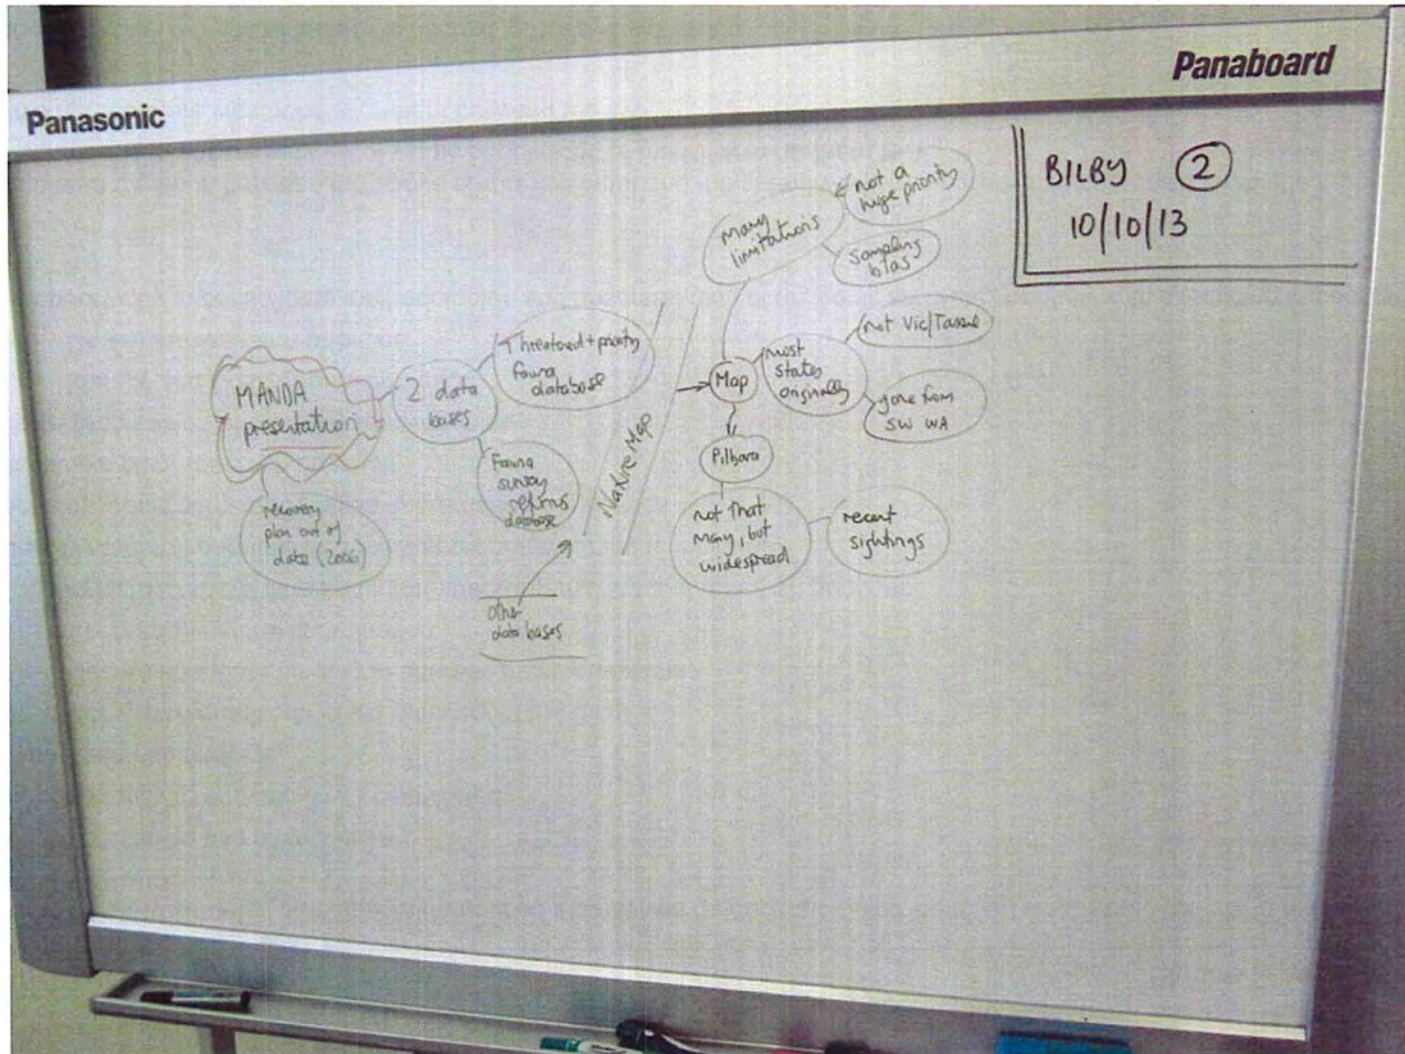 Panasonic
Panaboard
BILBY 2
10/10/13
MANDA
presentation
recovery
plan out of
date (2006)
2 data
bases
Threatened + priority
fauna
database
Fauna
survey
returns
database
other
data bases
NatureMap
Map
many
limitations
not a
huge priority
sampling
bias
most
states
originally
not Vic/Tassie
gone from
SW WA
Pilbara
not that
many, but
widespread
recent
sightings